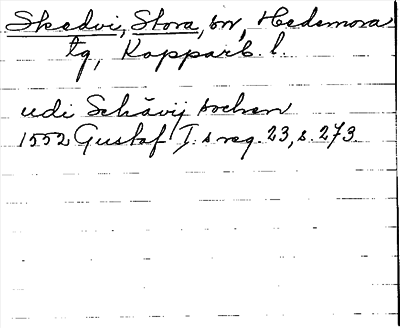 Skedvi, Stora, sn, Hedemora
tg, Kopparb. l.
udi Schävij sochen
1552 Gustaf I:s reg. 23, s. 273.